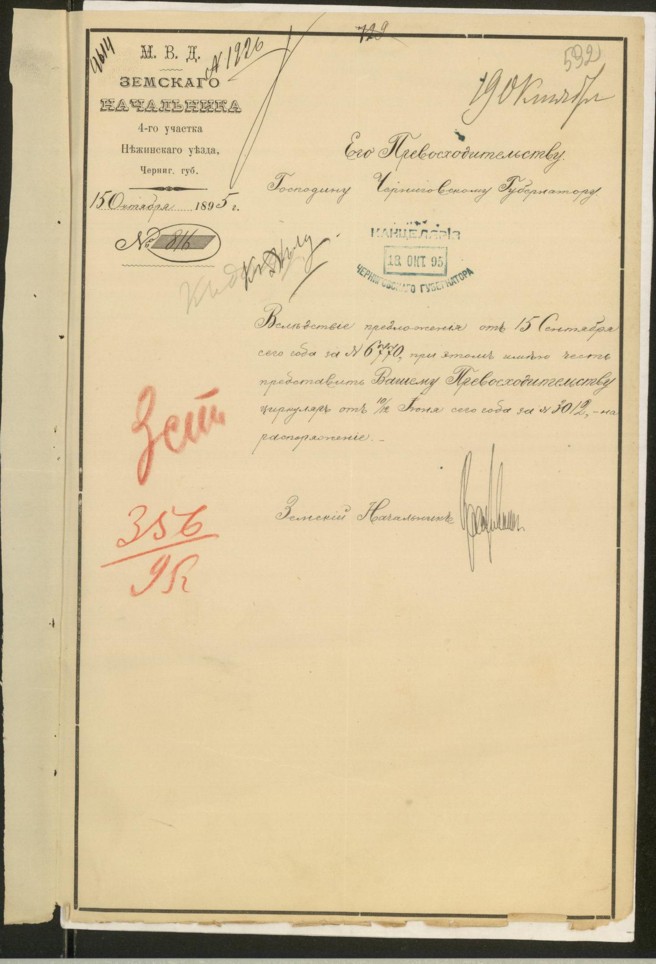 9614
№ 1226
129
592
М. В. Д.
ЗЕМСКАГО
НАЧАЛЬНИКА
4-го участка
Нѣжинскаго уѣзда,
Черниг. губ.
15 Октября 1895 г.
№ 816
19 Октября
Его Превосходительству
Господину Черниговскому Губернатору
КАНЦЕЛЯРІЯ
18 ОКТ. 95
ЧЕРНИГОВСКАГО ГУБЕРНАТОРА
Вслѣдствіе предложенія отъ 15 Сентября
сего года за № 6770, при этомъ имѣю честь
представить Вашему Превосходительству
циркуляръ отъ 10/12 Іюня сего года за № 3012, - на
распоряженіе. -
Земскій Начальникъ
3 ст
356
95